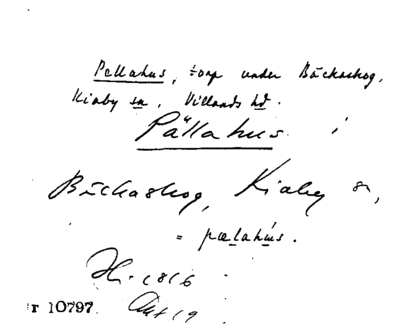 Pellahus, torp under Bäckaskog,
Kiaby sn, Villands hd.
Pällahus. i
Bäckaskog, Kiaby sn,
= pælahus.
H. 1816
r 10797